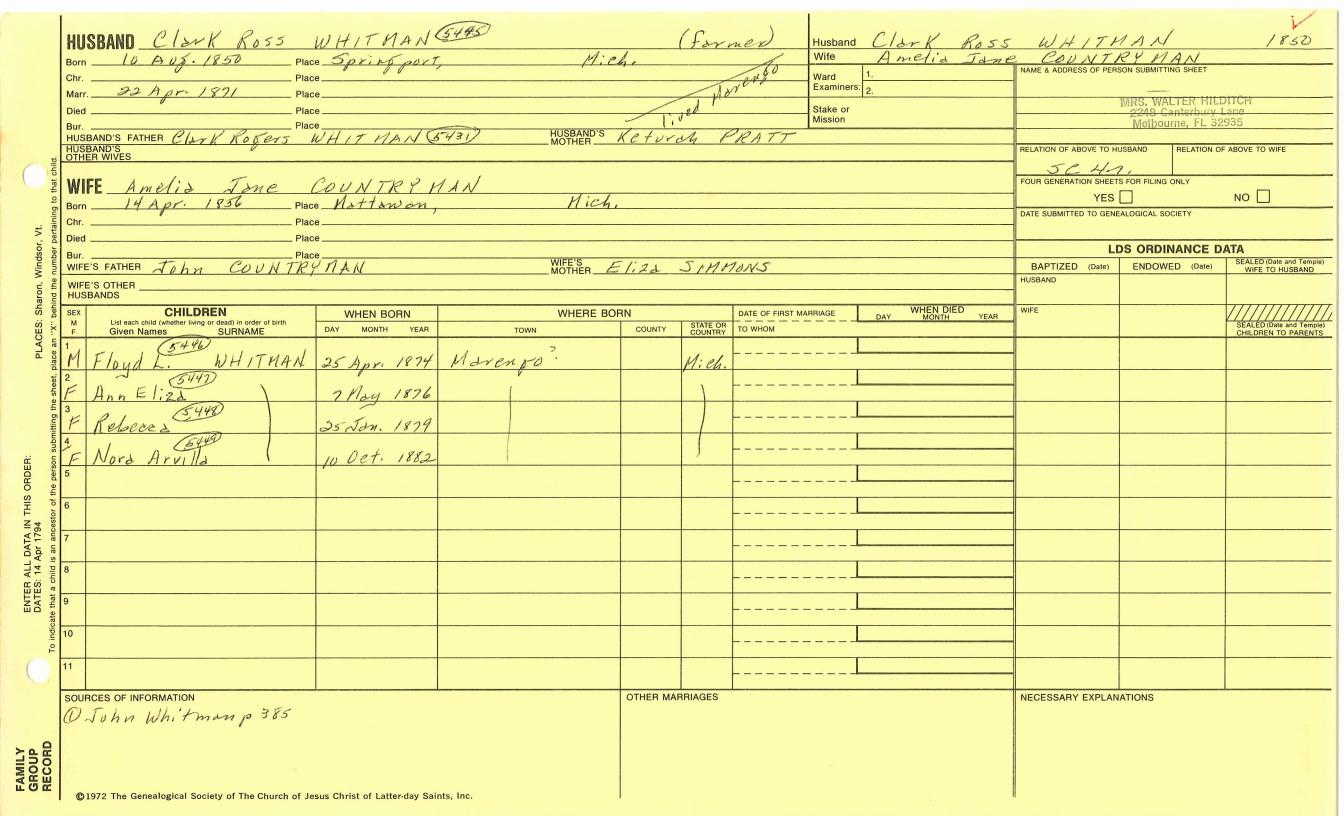 HUSBAND Clark Ross WHITMAN 5445 (farmer)
Born 10 Aug. 1850 Place Springport, Mich.
Chr. Place
Marr. 22 Apr 1871 Place
lived Marengo
Died Place
Bur. Place
HUSBAND'S FATHER Clark Rogers WHITMAN 5431 HUSBAND'S MOTHER Keturah PRATT
HUSBAND'S OTHER WIVES
WIFE Amelia Jane COUNTRYMAN
Born 14 Apr. 1856 Place Mattawan, Mich.
Chr. Place
Died Place
Bur. Place
WIFE'S FATHER John COUNTRYMAN WIFE'S MOTHER Eliza SIMMONS
WIFE'S OTHER HUSBANDS
Husband Clark Ross WHITMAN 1850
Wife Amelia Jane COUNTRYMAN
Ward Examiners: 1.
2.
Stake or Mission
NAME & ADDRESS OF PERSON SUBMITTING SHEET
MRS. WALTER HILDITCH
2248 Canterbury Lane
Melbourne, FL 32935
RELATION OF ABOVE TO HUSBAND RELATION OF ABOVE TO WIFE
FOUR GENERATION SHEETS FOR FILING ONLY
YES NO
DATE SUBMITTED TO GENEALOGICAL SOCIETY
LDS ORDINANCE DATA
BAPTIZED (Date) ENDOWED (Date) SEALED (Date and Temple) WIFE TO HUSBAND
HUSBAND
WIFE
SEALED (Date and Temple) CHILDREN TO PARENTS
SEX M F
CHILDREN
List each child (whether living or dead) in order of birth
Given Names SURNAME
WHEN BORN
DAY MONTH YEAR
WHERE BORN
TOWN COUNTY STATE OR COUNTRY
DATE OF FIRST MARRIAGE
TO WHOM
WHEN DIED
DAY MONTH YEAR
1 M Floyd L. 5446 WHITMAN 25 Apr. 1874 Marengo? Mich.
2 F Ann Eliza 5447 7 May 1876
3 F Rebecca 5448 25 Jan. 1879
4 F Nora Arvilla 5449 10 Oct. 1882
5
6
7
8
9
10
11
SOURCES OF INFORMATION
① John Whitman p 385
OTHER MARRIAGES
NECESSARY EXPLANATIONS
©1972 The Genealogical Society of The Church of Jesus Christ of Latter-day Saints, Inc.
FAMILY GROUP RECORD
ENTER ALL DATA IN THIS ORDER:
DATES: 14 Apr 1794
PLACES: Sharon, Windsor, Vt.
To indicate that a child is an ancestor of the person submitting the sheet, place an "X" behind the number pertaining to that child.